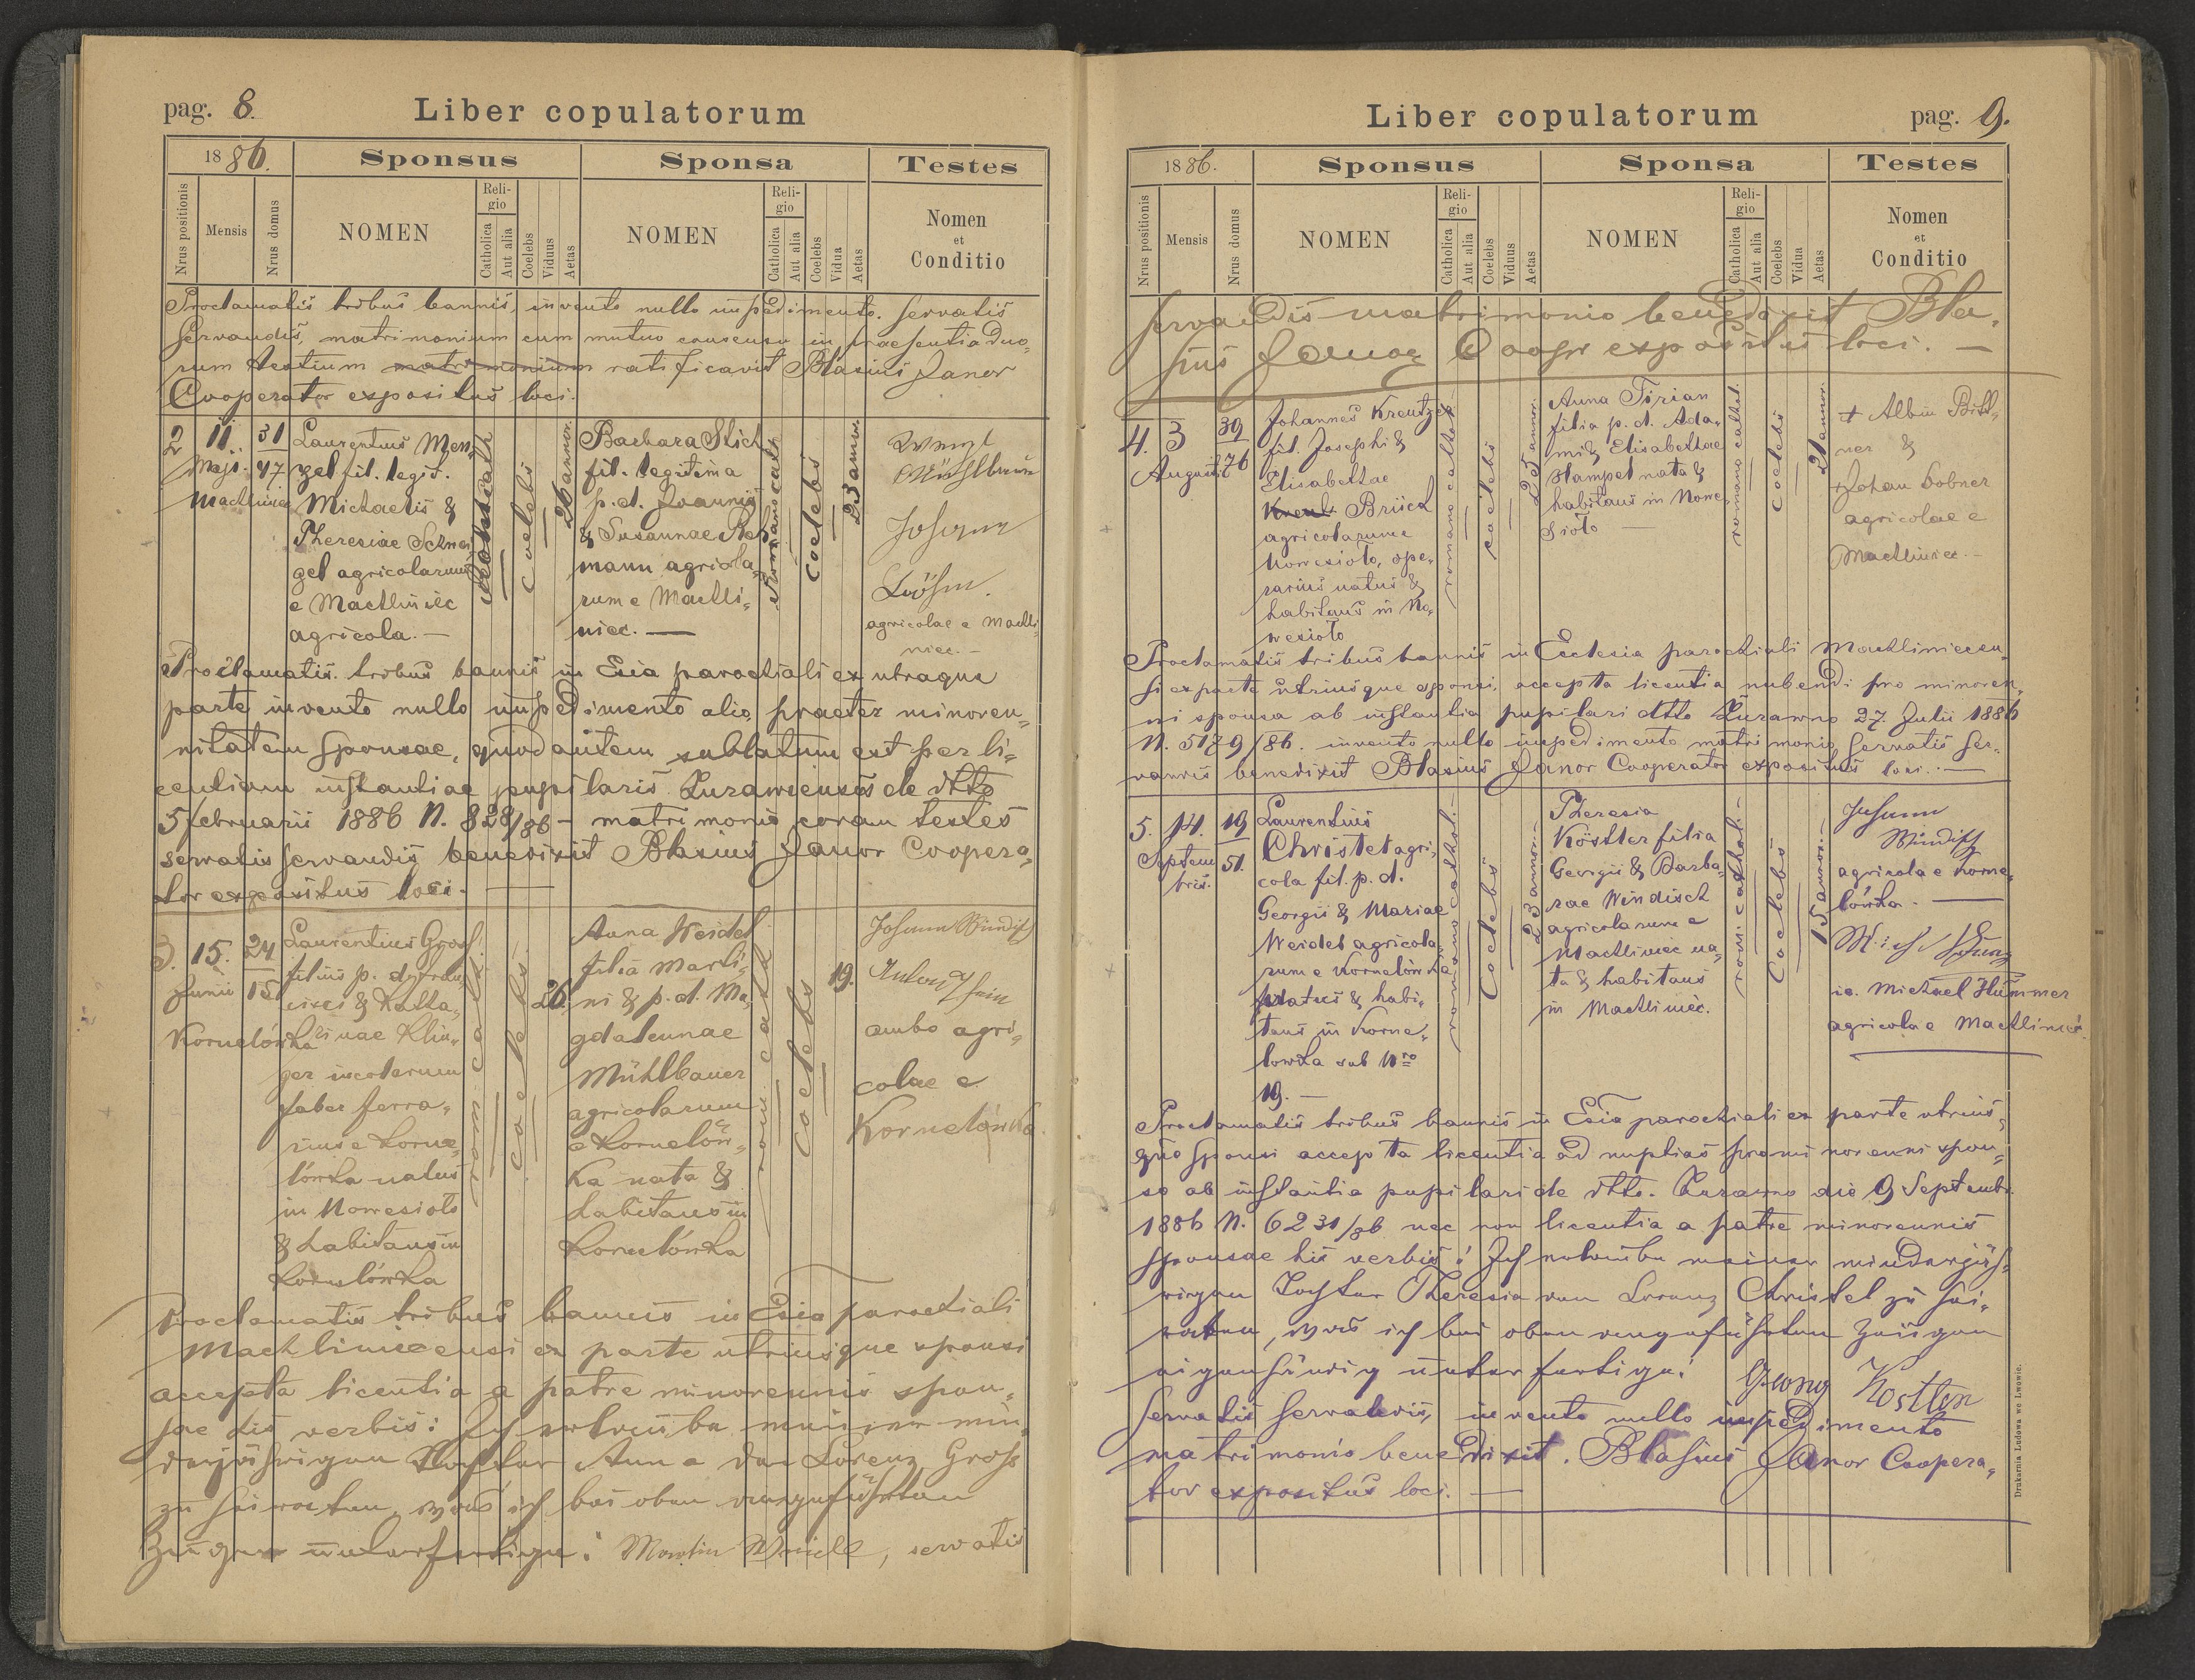 pag. 8.
Liber copulatorum
1886.
Sponsus
Sponsa
Testes
Nrus positionis
Mensis
Nrus domus
NOMEN
Religio
Catholica
Aut alia
Coelebs
Viduus
Aetas
NOMEN
Religio
Catholica
Aut alia
Coelebs
Vidua
Aetas
Nomen
et
Conditio
Proclamatis tribus bannis, invento nullo impedimento. servatis
servandis, matrimonium cum mutuo consensu in praesentia duo-
rum testium matrimonium ratificavit Blasius Janor
Cooperator expositus loci.
2
11.
Maji.
Machliniec
31
47
Laurentius Men-
zel fil. legit.
Michaelis &
Theresiae Schnei-
gel agricolarum
e Machliniec
agricola. —
coelebs
26 annor.
Barbara Slich
fil. legitima
p. d. Joannis
& Susannae Reh-
mann agricola-
rum e Machli-
niec. —
Romano cath.
coelebs
23 annor.
Wenzl
Mühlbauer
Johann
Böhm.
agricolae e Machli-
niec. —
Proclamatis tribus bannis in Ecia parochiali ex utraque
parte invento nullo impedimento alio, praeter minoren-
nitatem sponsae, quod autem sublatum est per li-
centiam instantiae pupilaris Zurawiensis de dtto
5 februarii 1886 N. 828/86 – matrimonio coram testes
servatis servandis benedixit Blasius Janor Coopera-
tor expositus loci. —
3.
15.
Junii
Kornelówka
24
15
Laurentius Gross
filius p. d. Fran-
cisci & Katha-
rinae Klin-
ger incolarum
faber ferra-
rius e Korne-
lówka natus
in Nowesioło
& habitans in
Kornelówka
rom. cath.
coelebs
26.
Anna Weidel
filia Marti-
ni & p. d. Ma-
gdalennae
Mühlbauer
agricolarum
e Kornelów-
ka nata &
habitans in
Kornelówka
rom. cath.
coelebs
19.
Johann Windisch
ambo agri-
colae e
Kornelówka.
Proclamatis tribus bannis in Ecia parochiali
Machliniecensi ex parte utriusque sponsi
accepta licentia a patre minorennis spon-
sae his verbis: Ich erlaube meiner min-
derjährigen Tochter Anna den Lorenz Gross
zu heiraten, was ich bei oben angeführten
Zeugen unterfertige: Martin Weidl, servatis
Liber copulatorum
pag. 9.
1886.
Sponsus
Sponsa
Testes
Nrus positionis
Mensis
Nrus domus
NOMEN
Religio
Catholica
Aut alia
Coelebs
Viduus
Aetas
NOMEN
Religio
Catholica
Aut alia
Coelebs
Vidua
Aetas
Nomen
et
Conditio
servandis matrimonio benedixit Bla-
sius Janor Cooper expositus loci. —
4.
3
August.
39
76
Johannes Kreutzer
fil. Josephi &
Elisabethae
Kreut Brück
agricolarum e
Nowesioło, ope-
rarius natus &
habitans in No-
wesioło
romano cathol. —
coelebs
25 annor.
Anna Tirian
filia p. d. Ada-
mi & Elisabethae
Stampel nata &
habitans in Nowe-
sioło —
romano cathol.
coelebs
21 annor.
+ Albin Bitt-
ner &
+ Johan Dobner
agricolae e
Machliniec. —
Proclamatis tribus bannis in Ecclesia parochiali Machliniecen-
si ex parte utriusque sponsi, accepta licentia nubendi pro minoren-
ni sponsa ab instantia pupilari dtto Zurawno 27. Julii 1886
N. 5189/86. invento nullo impedimento matrimonio servatis ser-
vandis benedixit Blasius Janor Cooperator expositus loci. —
5.
14.
Septem-
bris.
19
51.
Laurentius
Christel agri-
cola fil. p. d.
Georgii & Mariae
Weidel agricola-
rum e Kornelówka
natus & habi-
tans in Korne-
lowka sub Nro
19. —
romano cathol. —
Coelebs
23 annor. —
Theresia
Köstler filia
Georgii & Barba-
rae Windisch
agricolarum e
Machliniec na-
ta & habitans
in Machliniec.
rom. cathol. —
Coelebs
Johann
Windisch
agricola e Korne-
lówka. —
ie. Michael Hummer
agricola e Machliniec.
Proclamatis tribus bannis in Ecia parochiali ex parte utrius-
que sponsi accepta licentia ad nuptias pro minorenni spon-
so ab instantia pupilari de dtto. Zurawno die 9 Septembr.
1886 N. 6231/86 nec non licentia a patre minorennis
sponsae his verbis: Ich erlaube meiner minderjäh-
rigen Tochter Theresia den Lorenz Christel zu hei-
raten, was ich bei oben angeführten Zeugen
eigenhändig unterfertige: Georg Kostler
Servatis servandis, invento nullo impedimento
matrimonio benedixit. Blasius Janor Coopera-
tor expositus loci. —
Drukarnia Ludowa we Lwowie.